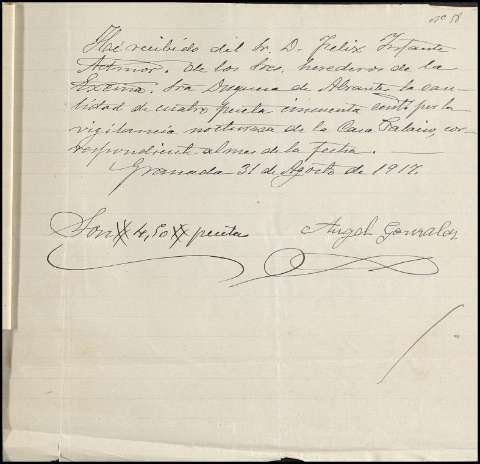 nº 58
He recibido del Sr. D. Felix Infante
Admor. de los Sres. herederos de la
Excma. Sra Duquesa de Abrantes la can-
tidad de cuatro peseta cincuenta cents por la
vigilancia nocturna de la Casa Palacio, cor-
respondiente al mes de la fecha.
Granada 31 de Agosto de 1917.
Son 4,50 peseta
Angel Gonzalez